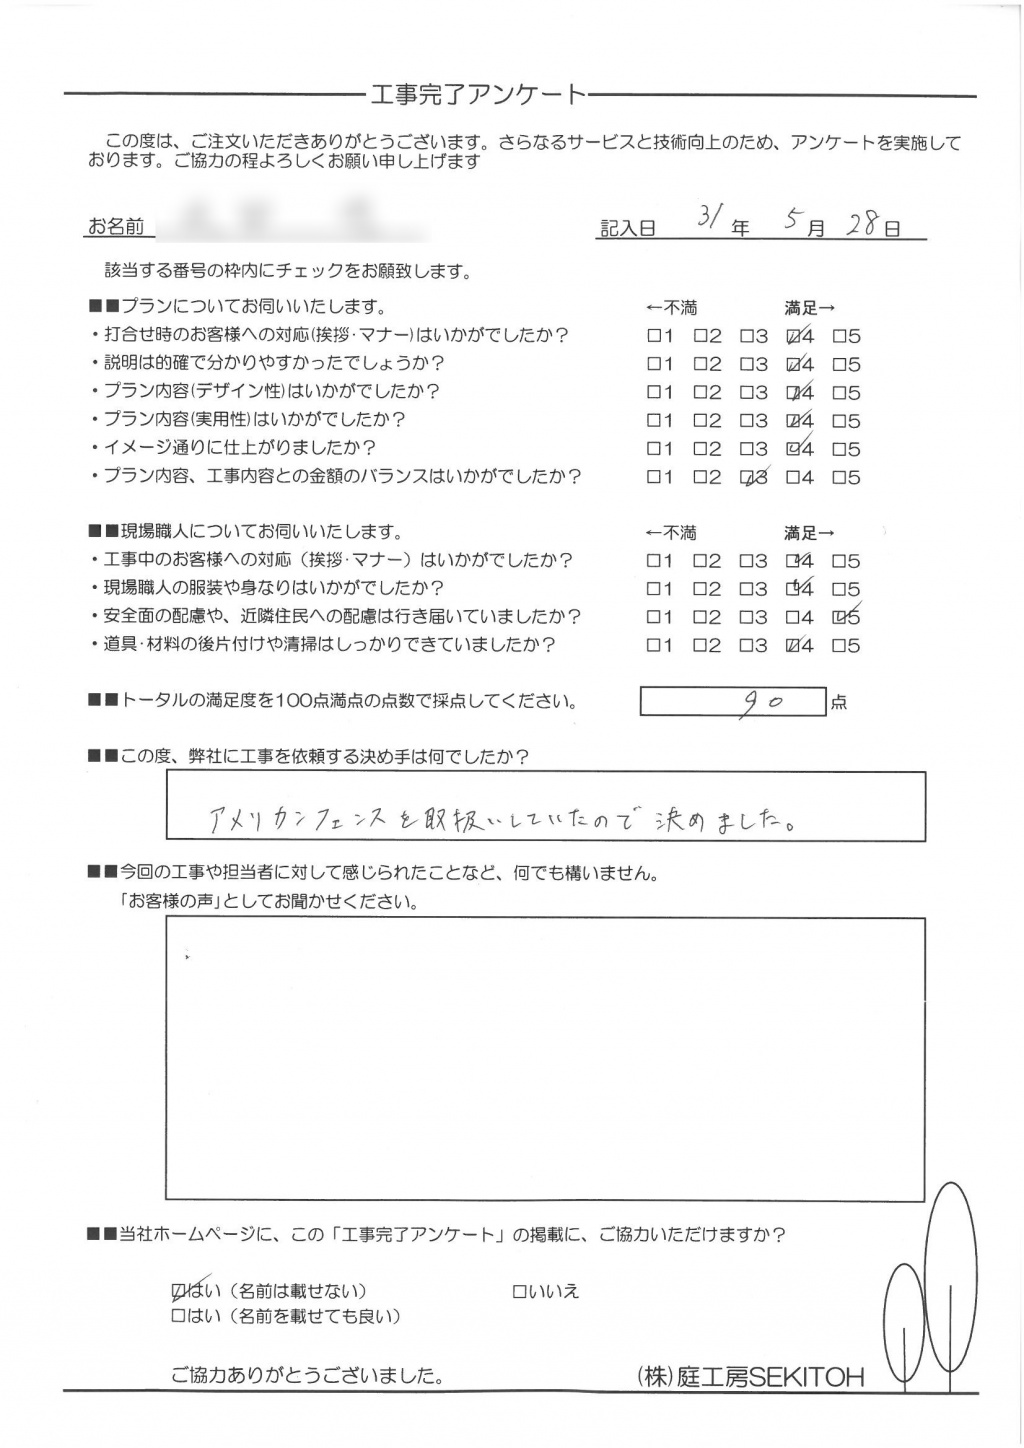 工事完了アンケート
この度は、ご注文いただきありがとうございます。さらなるサービスと技術向上のため、アンケートを実施して
おります。ご協力の程よろしくお願い申し上げます
お名前 記入日 31年 5月 28日
該当する番号の枠内にチェックをお願致します。
■■プランについてお伺いいたします。 ←不満 満足→
・打合せ時のお客様への対応(挨拶・マナー)はいかがでしたか? □1 □2 □3 ☑4 □5
・説明は的確で分かりやすかったでしょうか? □1 □2 □3 ☑4 □5
・プラン内容(デザイン性)はいかがでしたか? □1 □2 □3 ☑4 □5
・プラン内容(実用性)はいかがでしたか? □1 □2 □3 ☑4 □5
・イメージ通りに仕上がりましたか? □1 □2 □3 ☑4 □5
・プラン内容、工事内容との金額のバランスはいかがでしたか? □1 □2 ☑3 □4 □5
■■現場職人についてお伺いいたします。 ←不満 満足→
・工事中のお客様への対応(挨拶・マナー)はいかがでしたか? □1 □2 □3 ☑4 □5
・現場職人の服装や身なりはいかがでしたか? □1 □2 □3 ☑4 □5
・安全面の配慮や、近隣住民への配慮は行き届いていましたか? □1 □2 □3 □4 ☑5
・道具・材料の後片付けや清掃はしっかりできていましたか? □1 □2 □3 ☑4 □5
■■トータルの満足度を100点満点の点数で採点してください。 90 点
■■この度、弊社に工事を依頼する決め手は何でしたか?
アメリカンフェンスを取扱いしていたので決めました。
■■今回の工事や担当者に対して感じられたことなど、何でも構いません。
「お客様の声」としてお聞かせください。
■■当社ホームページに、この「工事完了アンケート」の掲載に、ご協力いただけますか?
☑はい(名前は載せない) □いいえ
□はい(名前を載せても良い)
ご協力ありがとうございました。 (株)庭工房SEKITOH